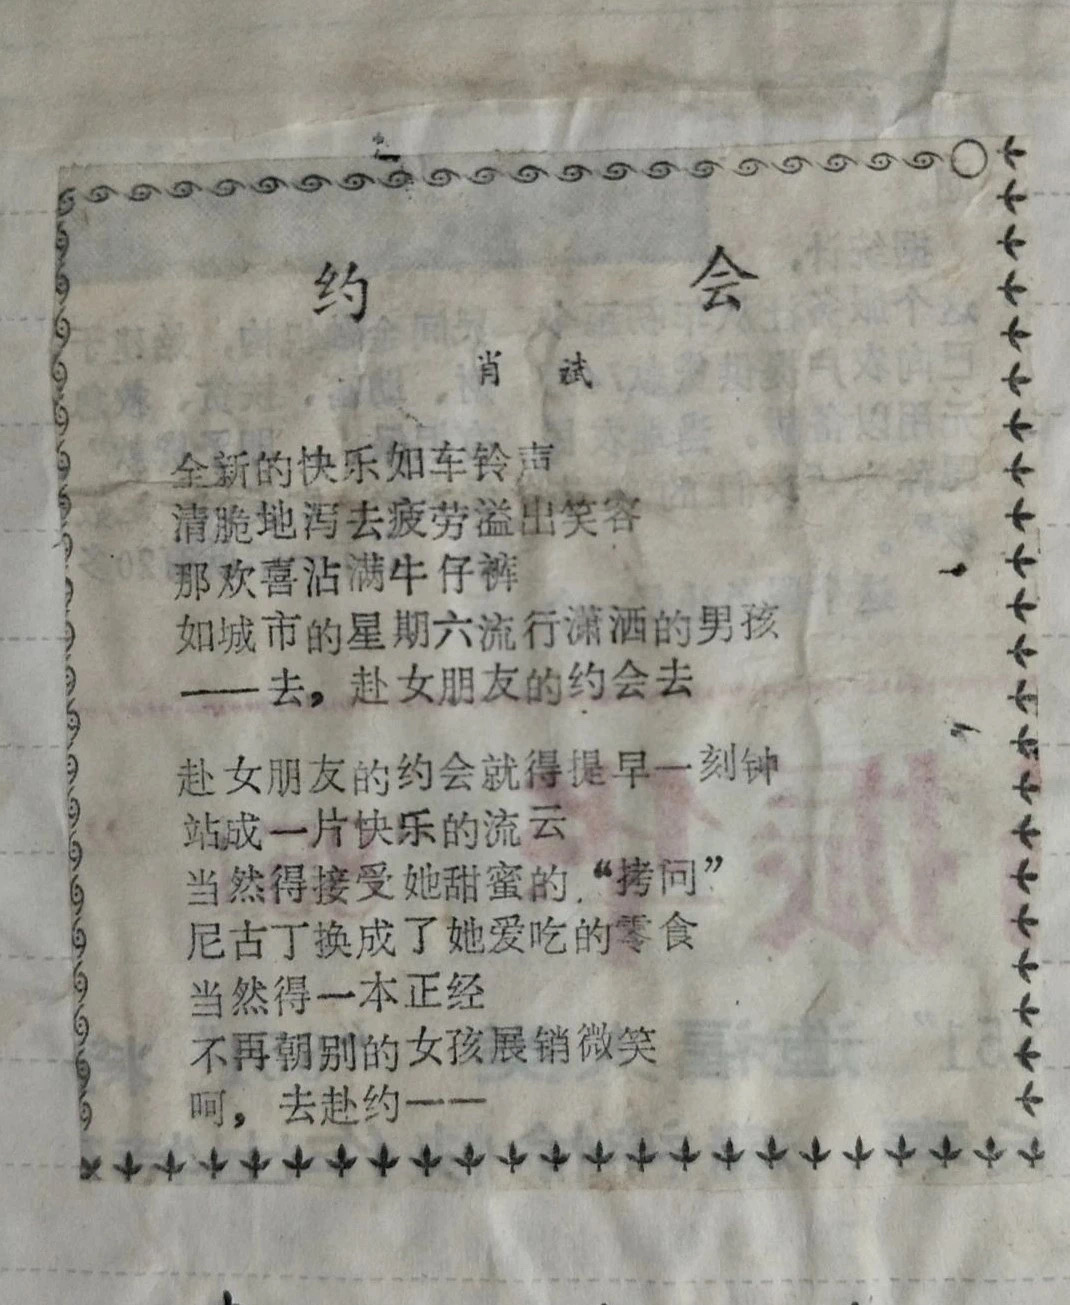 约会
肖斌
全新的快乐如车铃声
清脆地泻去疲劳溢出笑容
那欢喜沾满牛仔裤
如城市的星期六流行潇洒的男孩
——去，赴女朋友的约会去
赴女朋友的约会就得提早一刻钟
站成一片快乐的流云
当然得接受她甜蜜的“拷问”
尼古丁换成了她爱吃的零食
当然得一本正经
不再朝别的女孩展销微笑
呵，去赴约——